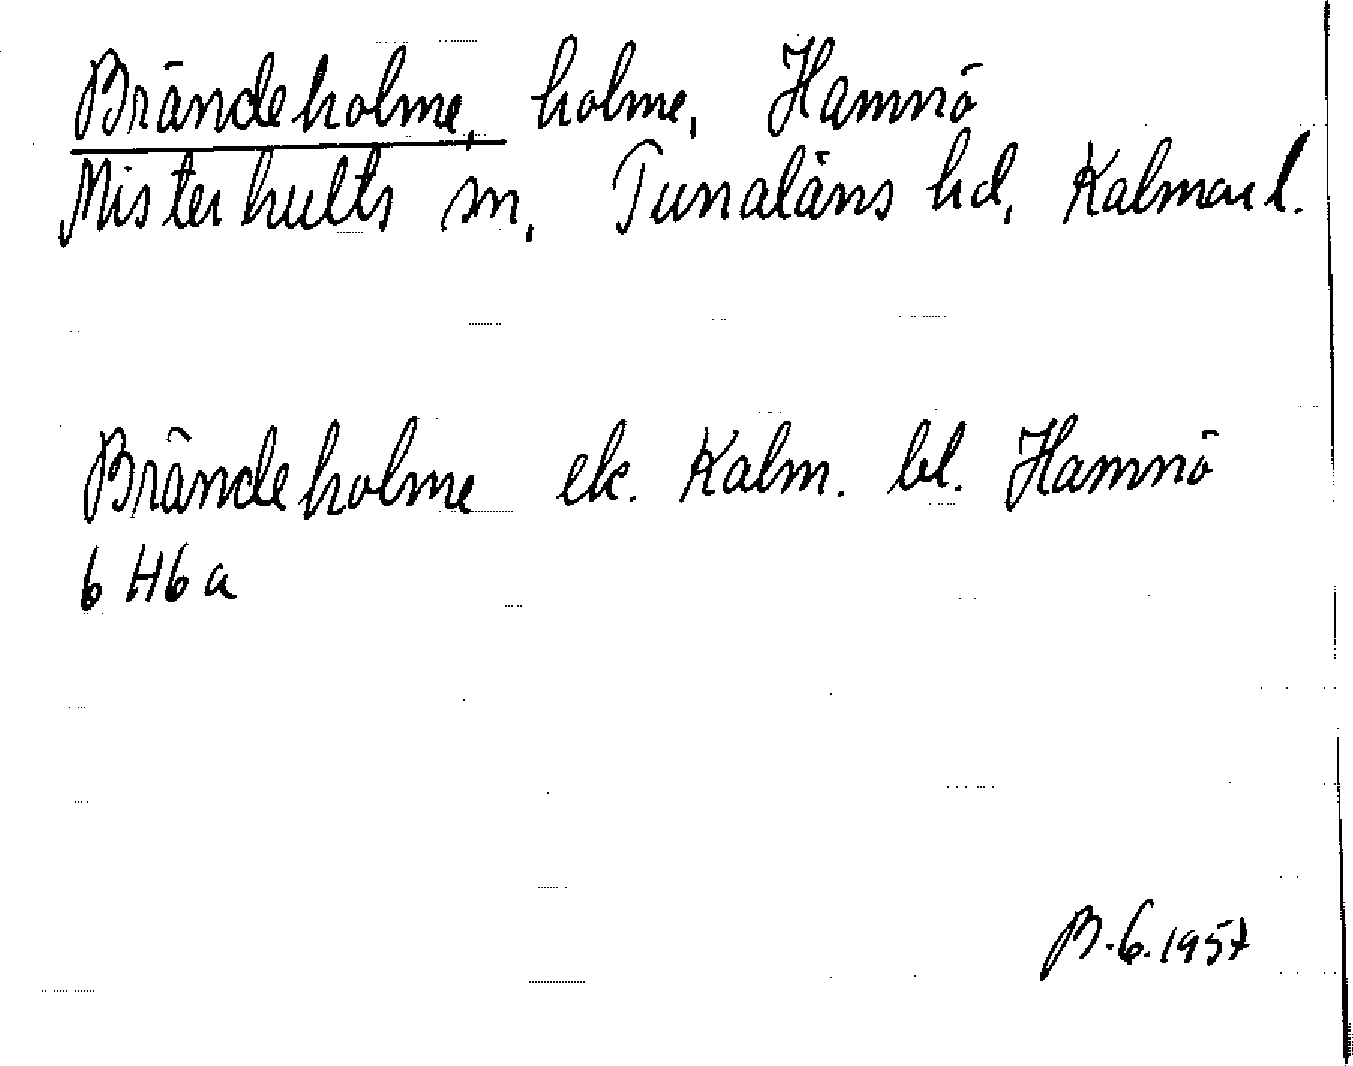 Brändeholme, holme, Hamnö
Misterhults sn, Tunaläns hd, Kalmar l.
Brändeholme ek. Kalm. bl. Hamnö
6 H6a
B.G. 1957